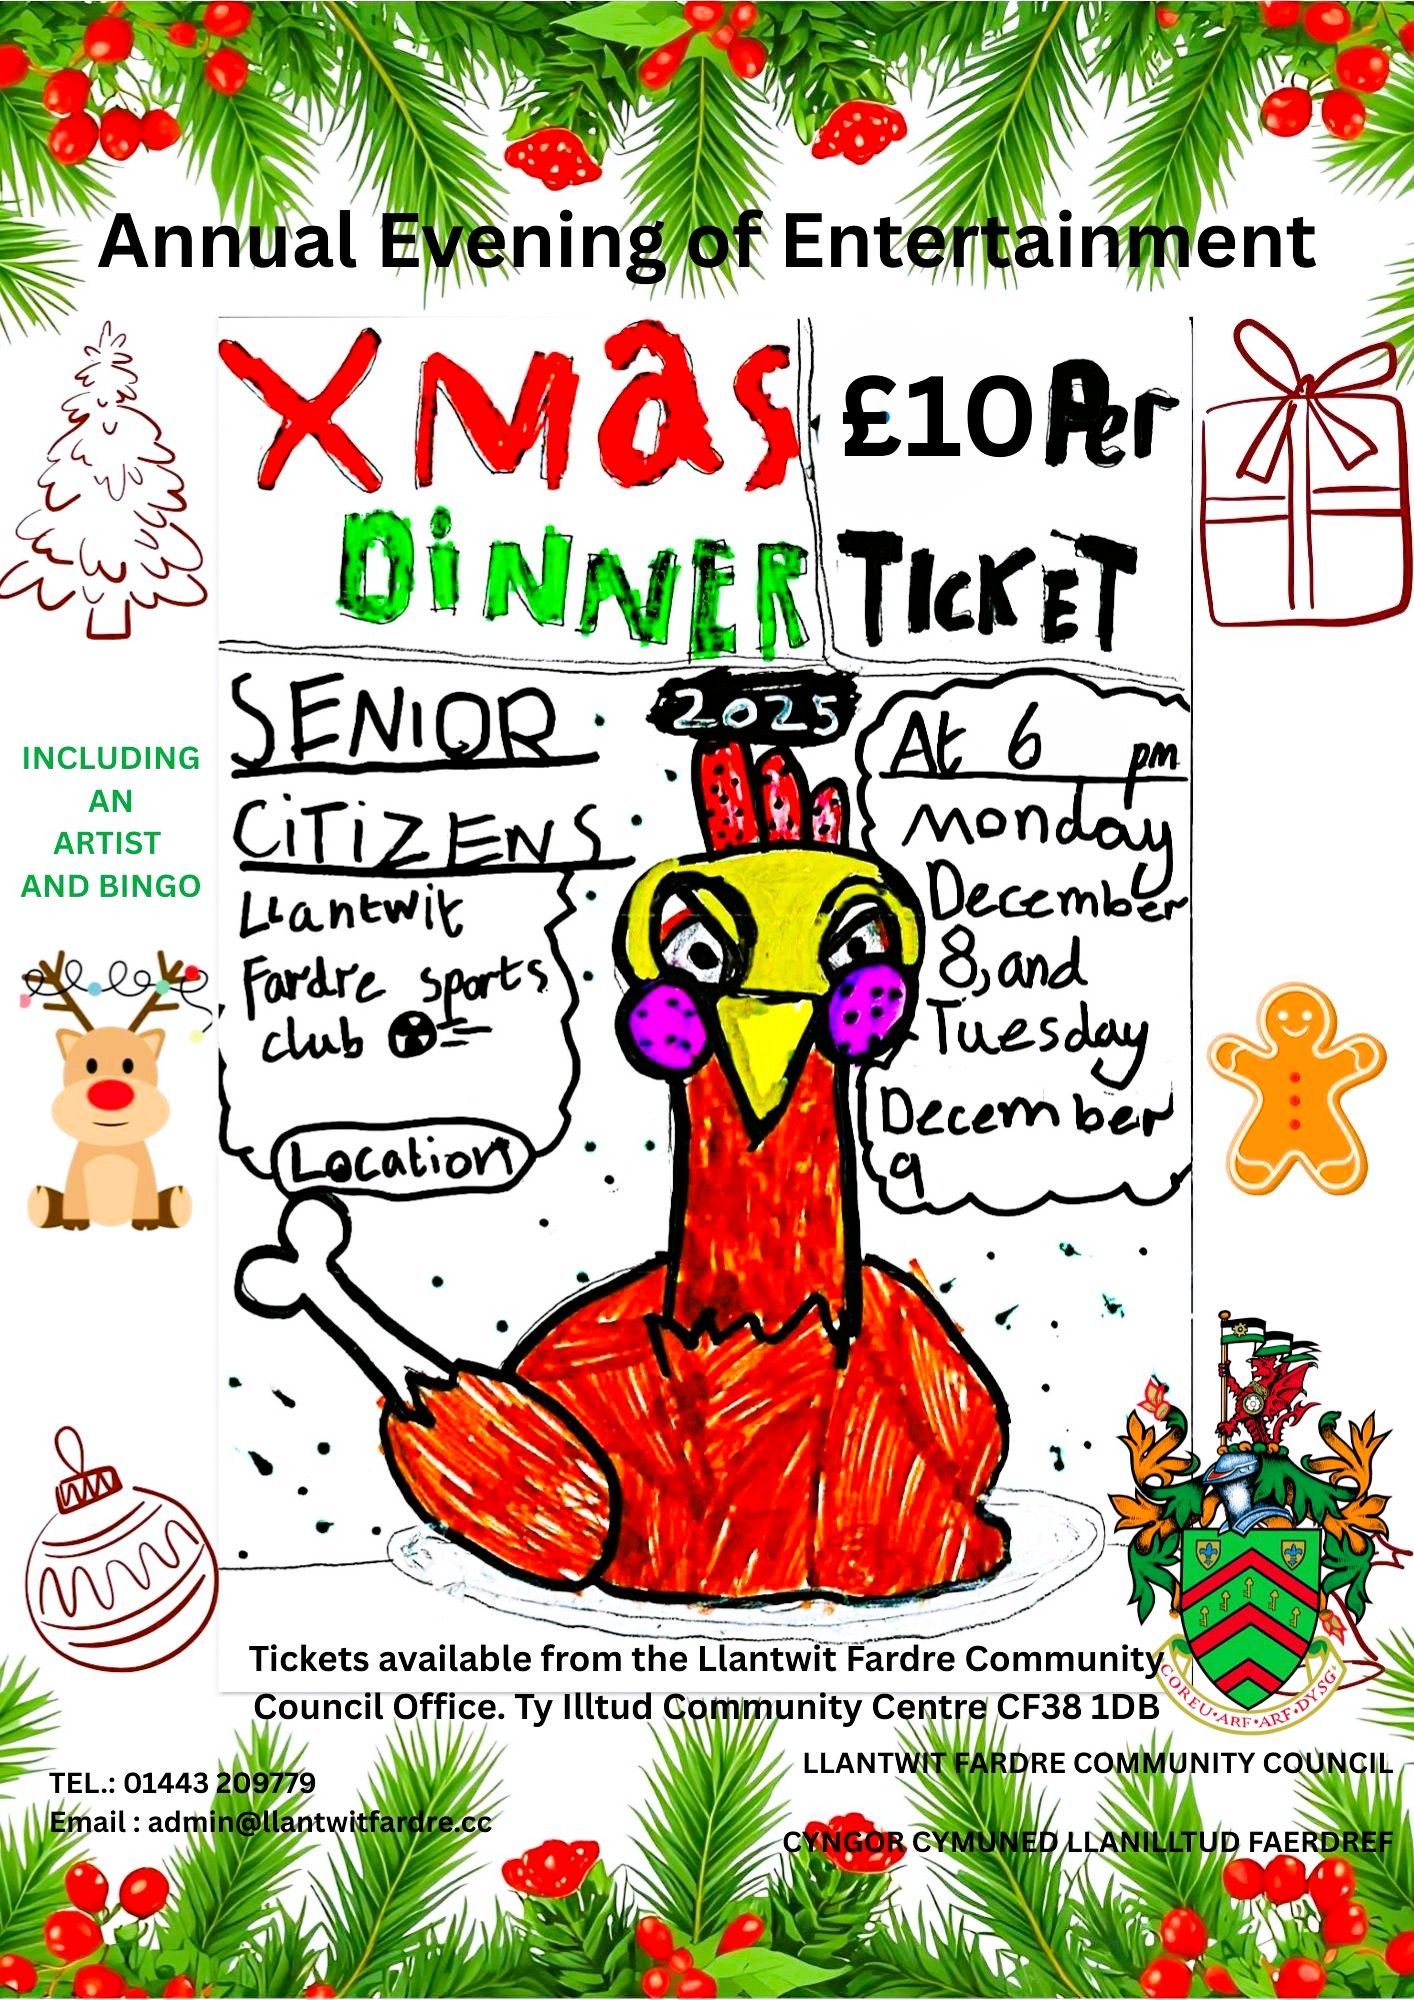 Annual Evening of Entertainment
Xmas
DiNNER
£10 Per
TICKET
SENIOR
CiTiZENS
2025
At 6 pm
Monday
December
8, and
Tuesday
December
9
Llantwit
Fardre sports
club
Location
INCLUDING
AN
ARTIST
AND BINGO
Tickets available from the Llantwit Fardre Community
Council Office. Ty Illtud Community Centre CF38 1DB
COREU·ARF·ARF·DYSG
TEL.: 01443 209779
Email : admin@llantwitfardre.cc
LLANTWIT FARDRE COMMUNITY COUNCIL
CYNGOR CYMUNED LLANILLTUD FAERDREF